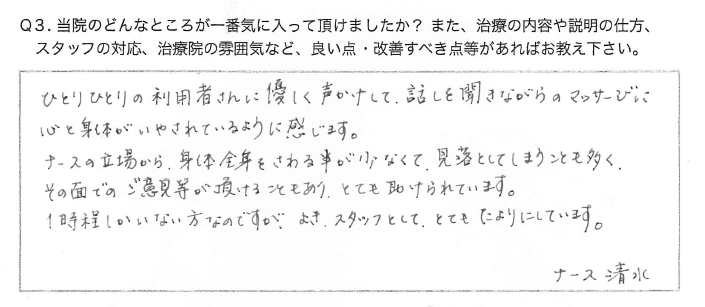 Q3. 当院のどんなところが一番気に入って頂けましたか？ また、治療の内容や説明の仕方、
スタッフの対応、治療院の雰囲気など、良い点・改善すべき点等があればお教え下さい。
ひとりひとりの利用者さんに優しく声かけして、話しを聞きながらのマッサージに
心と身体がいやされているように感じます。
ナースの立場から、身体全身をさわる事が少なくて、見落としてしまうことも多く、
その面でのご意見等が頂けることもあり、とても助けられています。
1時程しかいない方なのですが、よき、スタッフとして、とてもたよりにしています。
ナース 清水